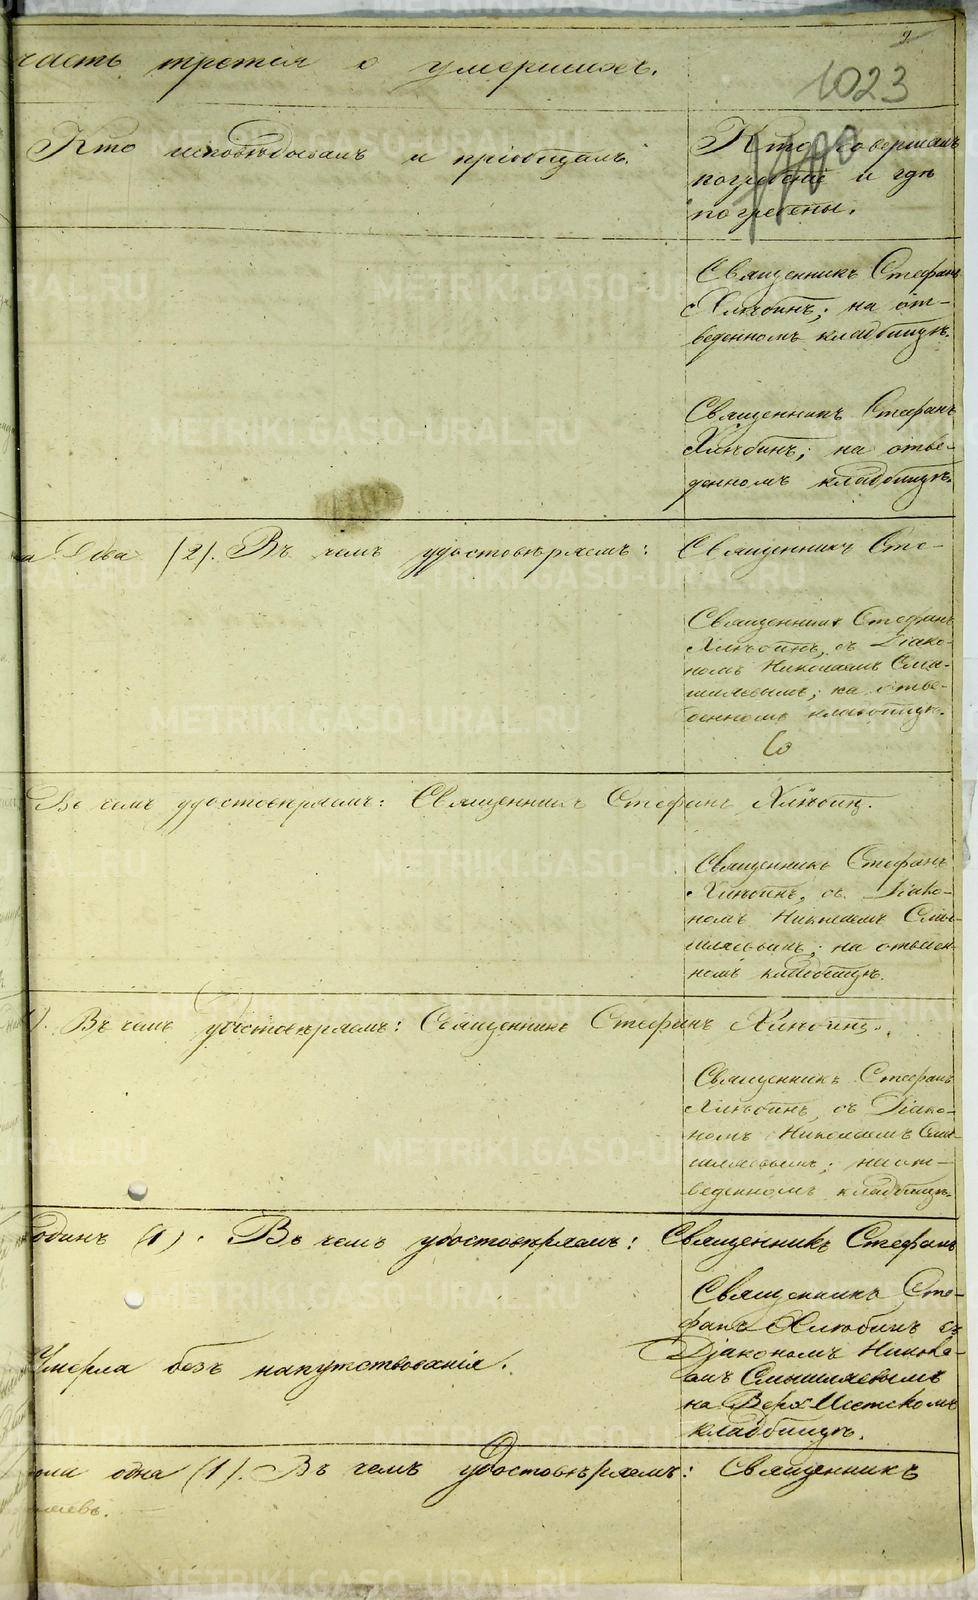 2.
часть третья о умершихъ.
1023
Кто исповѣдовалъ и пріобщалъ.
Кто совершалъ
погребеніе и гдѣ
погребены.
Священникъ Стефанъ
Хлѣбинъ; на от-
веденномъ кладбищѣ.
Священникъ Стефанъ
Хлѣбинъ; на отве-
денномъ кладбищѣ.
два (2). Въ чемъ удостовѣряемъ: Священникъ Сте-
Священникъ Стефанъ
Хлѣбинъ, съ Діако-
номъ Николаемъ Смы-
шляевымъ; на отве-
денномъ кладбищѣ.
Въ чемъ удостовѣряемъ: Священникъ Стефанъ Хлѣбин.
Священникъ Стефанъ
Хлѣбинъ, съ Діако-
номъ Николаемъ Смы-
шляевымъ; на отведен-
номъ кладбищѣ.
). Въ чемъ удостовѣряемъ: Священникъ Стефанъ Хлѣбин.
Священникъ Стефанъ
Хлѣбинъ, съ Діако-
номъ Николаемъ Смы-
шляевымъ; на от-
веденномъ кладбищѣ.
одинъ (1). Въ чемъ удостовѣряемъ: Священникъ Стефанъ
Священникъ Сте-
фанъ Хлѣбинъ съ
Умерла безъ напутствованія.
Діакономъ Никола-
емъ Смышляевымъ
на Верхъ Исетскомъ
кладбищѣ.
одна (1). Въ чемъ удостовѣряемъ: Священникъ
METRIKI.GASO-URAL.RU